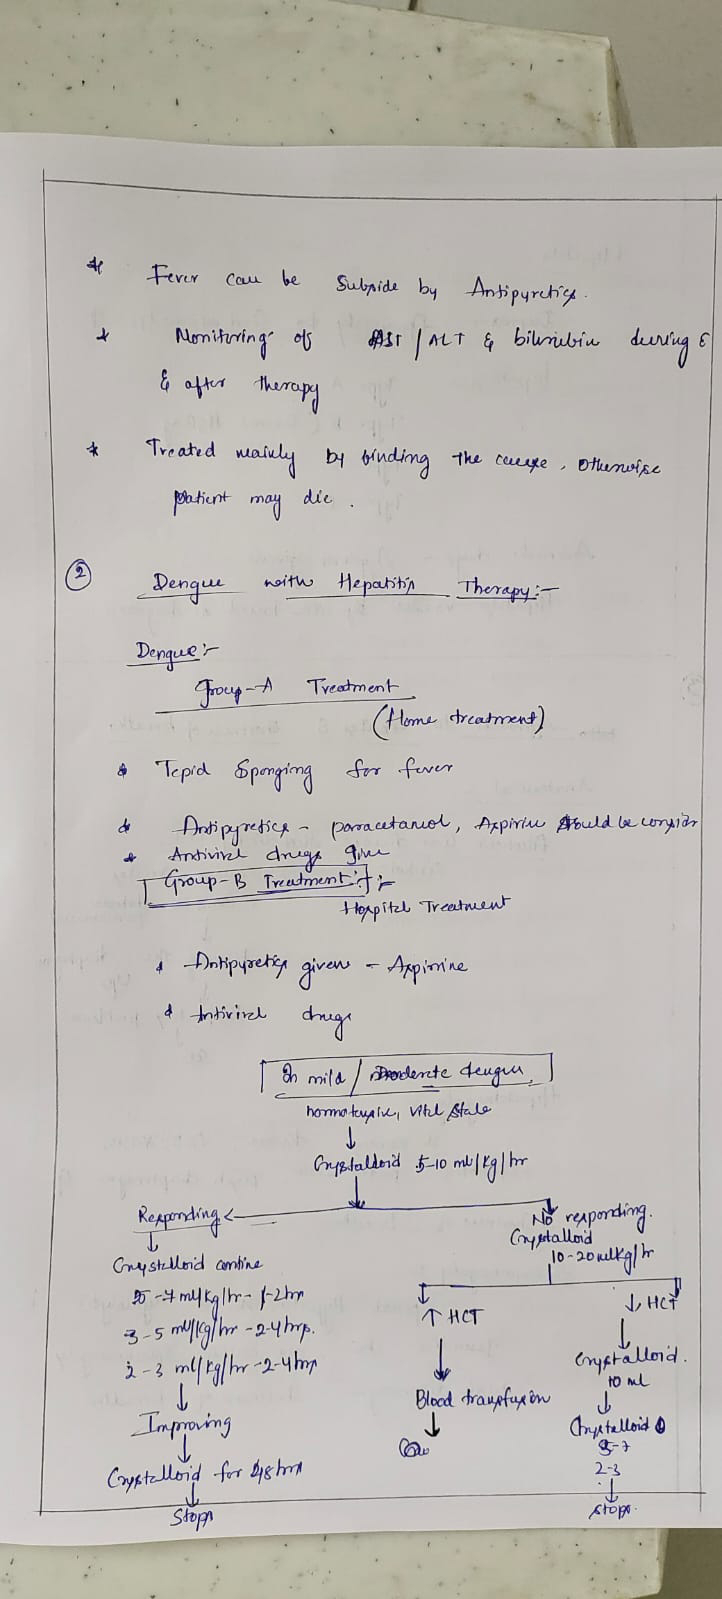 * Fever can be Subside by Antipyretics.
* Monitoring of AST / ALT & bilirubin during &
& after therapy
* Treated mainly by finding the cause, otherwise
patient may die.
② Dengue with Hepatitis Therapy:-
Dengue:-
Group-A Treatment
(Home treatment)
* Tepid Sponging for fever
* Antipyretics - paracetamol, Aspirin should be consider
* Antiviral drugs give
Group-B Treatment:-
Hospital Treatment
* Antipyretics given - Aspirine
* Antiviral drugs
In mild / moderate dengue
normotensive, vital stale
↓
Crystalloid 5-10 ml/kg/hr
Responding
No responding.
↓
Crystalloid
10-20 ml kg/hr
Crystalloid contine
5-7 ml/kg/hr - 1-2hr
3-5 ml/kg/hr - 2-4 hrs.
2-3 ml/kg/hr - 2-4hrs
↓
Improving
↓
Crystalloid for 48hrs
↓
Stops
↑ HCT
↓
Blood transfusion
↓
↓ HCT
↓
Crystalloid.
10 ml
↓
Crystalloid
5-7
2-3
↓
stops.